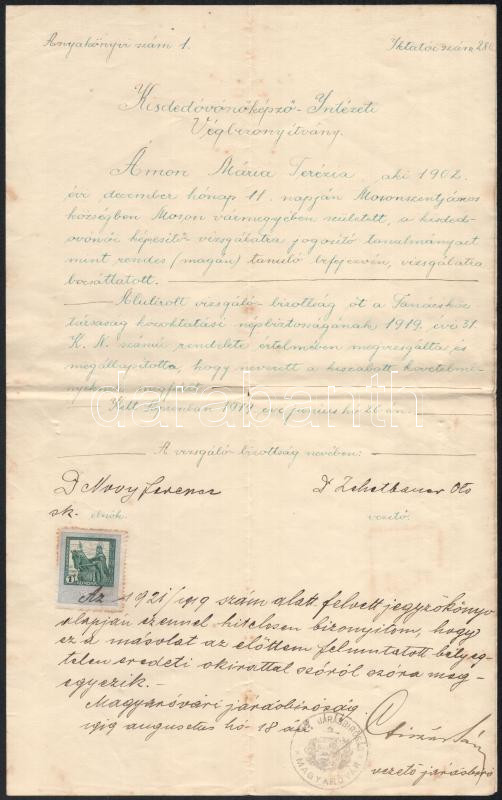 Anyakönyvi szám 1. Iktatói szám 28
Kisdedóvónőképző-Intézeti
Végbizonyítvány.
Ámon Mária Terézia, aki 1902.
évi december hónap 11. napján Mosonszentjános
községben Moson vármegyében született, a kisded-
óvónői képesítő vizsgálatra jogosító tanulmányait
mint rendes (magán) tanuló befejezvén, vizsgálatra
bocsáttatott.
Alulírott vizsgáló-bizottság őt a Tanácsköz
társaság közoktatási népbiztosságának 1919. évi 31.
K. N. számú rendelete értelmében megvizsgálta és
megállapította, hogy nevezett a kiszabott követelmé-
nyeknek megfelelt.
Kelt Sopronban 1919. évi június hó 26-án.
darabanth
A vizsgáló-bizottság nevében:
Dr Novy Ferencz Dr Zehetbauer Ottó
sk. elnök. vezető.
1
KORONA
Az 1921/1919 szám alatt felvett jegyzőkönyv
alapján ezennel hitelesen bizonyítom, hogy
ez a másolat az előttem felmutatott bélyeg-
telen eredeti okirattal szóról szóra meg-
egyezik.-
Magyaróvári járásbíróság.
1919 augusztus hó 18 án
JÁRÁSBÍRÓSÁG
MAGYARÓVÁR
vezető járásbíró